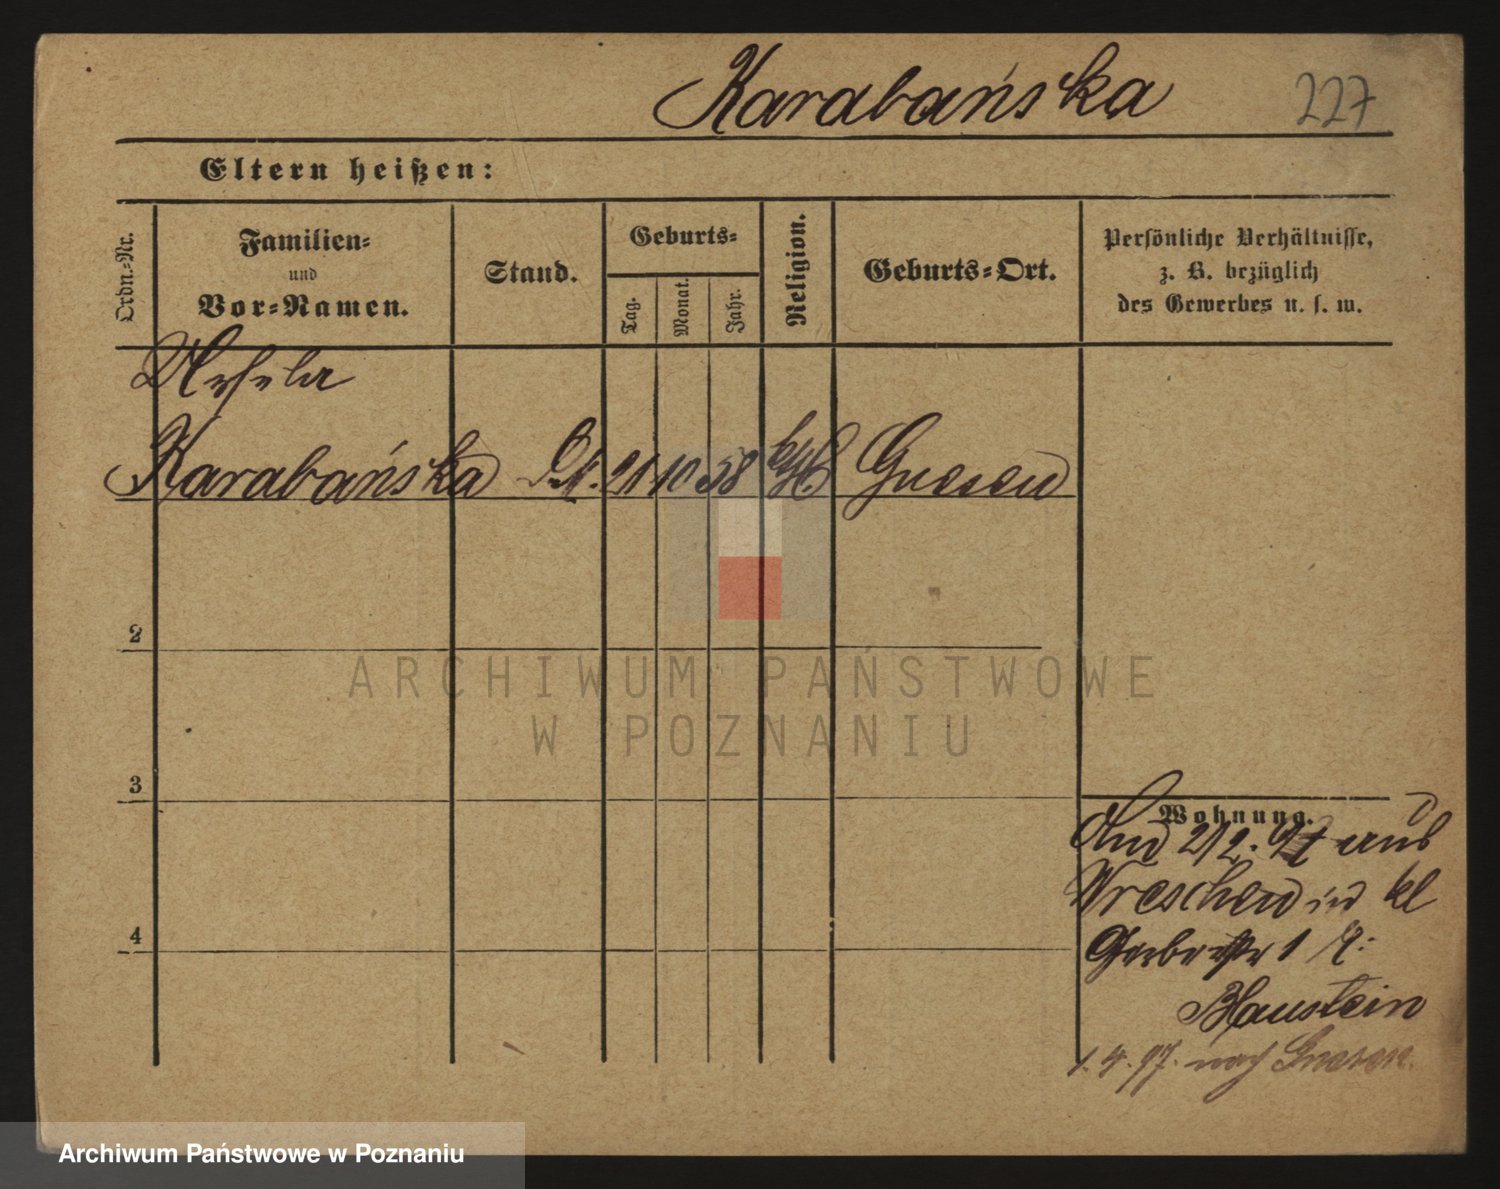 Karabańska 227
Eltern heißen:
Ordn.-Nr.
Familien-
und
Vor-Namen.
Stand.
Geburts-
Tag.
Monat.
Jahr.
Religion.
Geburts-Ort.
Persönliche Verhältnisse,
z. B. bezüglich
des Gewerbes u. s. w.
Karabańska 21 10 58 kth Gnesen
2
3
4
Wohnung.
2/2. 97 aus
Wreschen in kl
Gerberstr 1
Blaustein
1.4.97. nach Gnesen.
ARCHIWUM PAŃSTWOWE
W POZNANIU
Archiwum Państwowe w Poznaniu